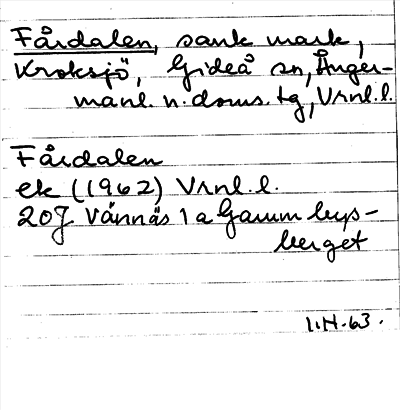 Fårdalen, sank mark,
Kroksjö, Gideå sn, Ånger-
manl. n. doms. tg, Vrnl. l.
Fårdalen
ek (1962) Vrnl. l.
20J Vännäs 1 a Gammburs-
berget
I.H. 63.